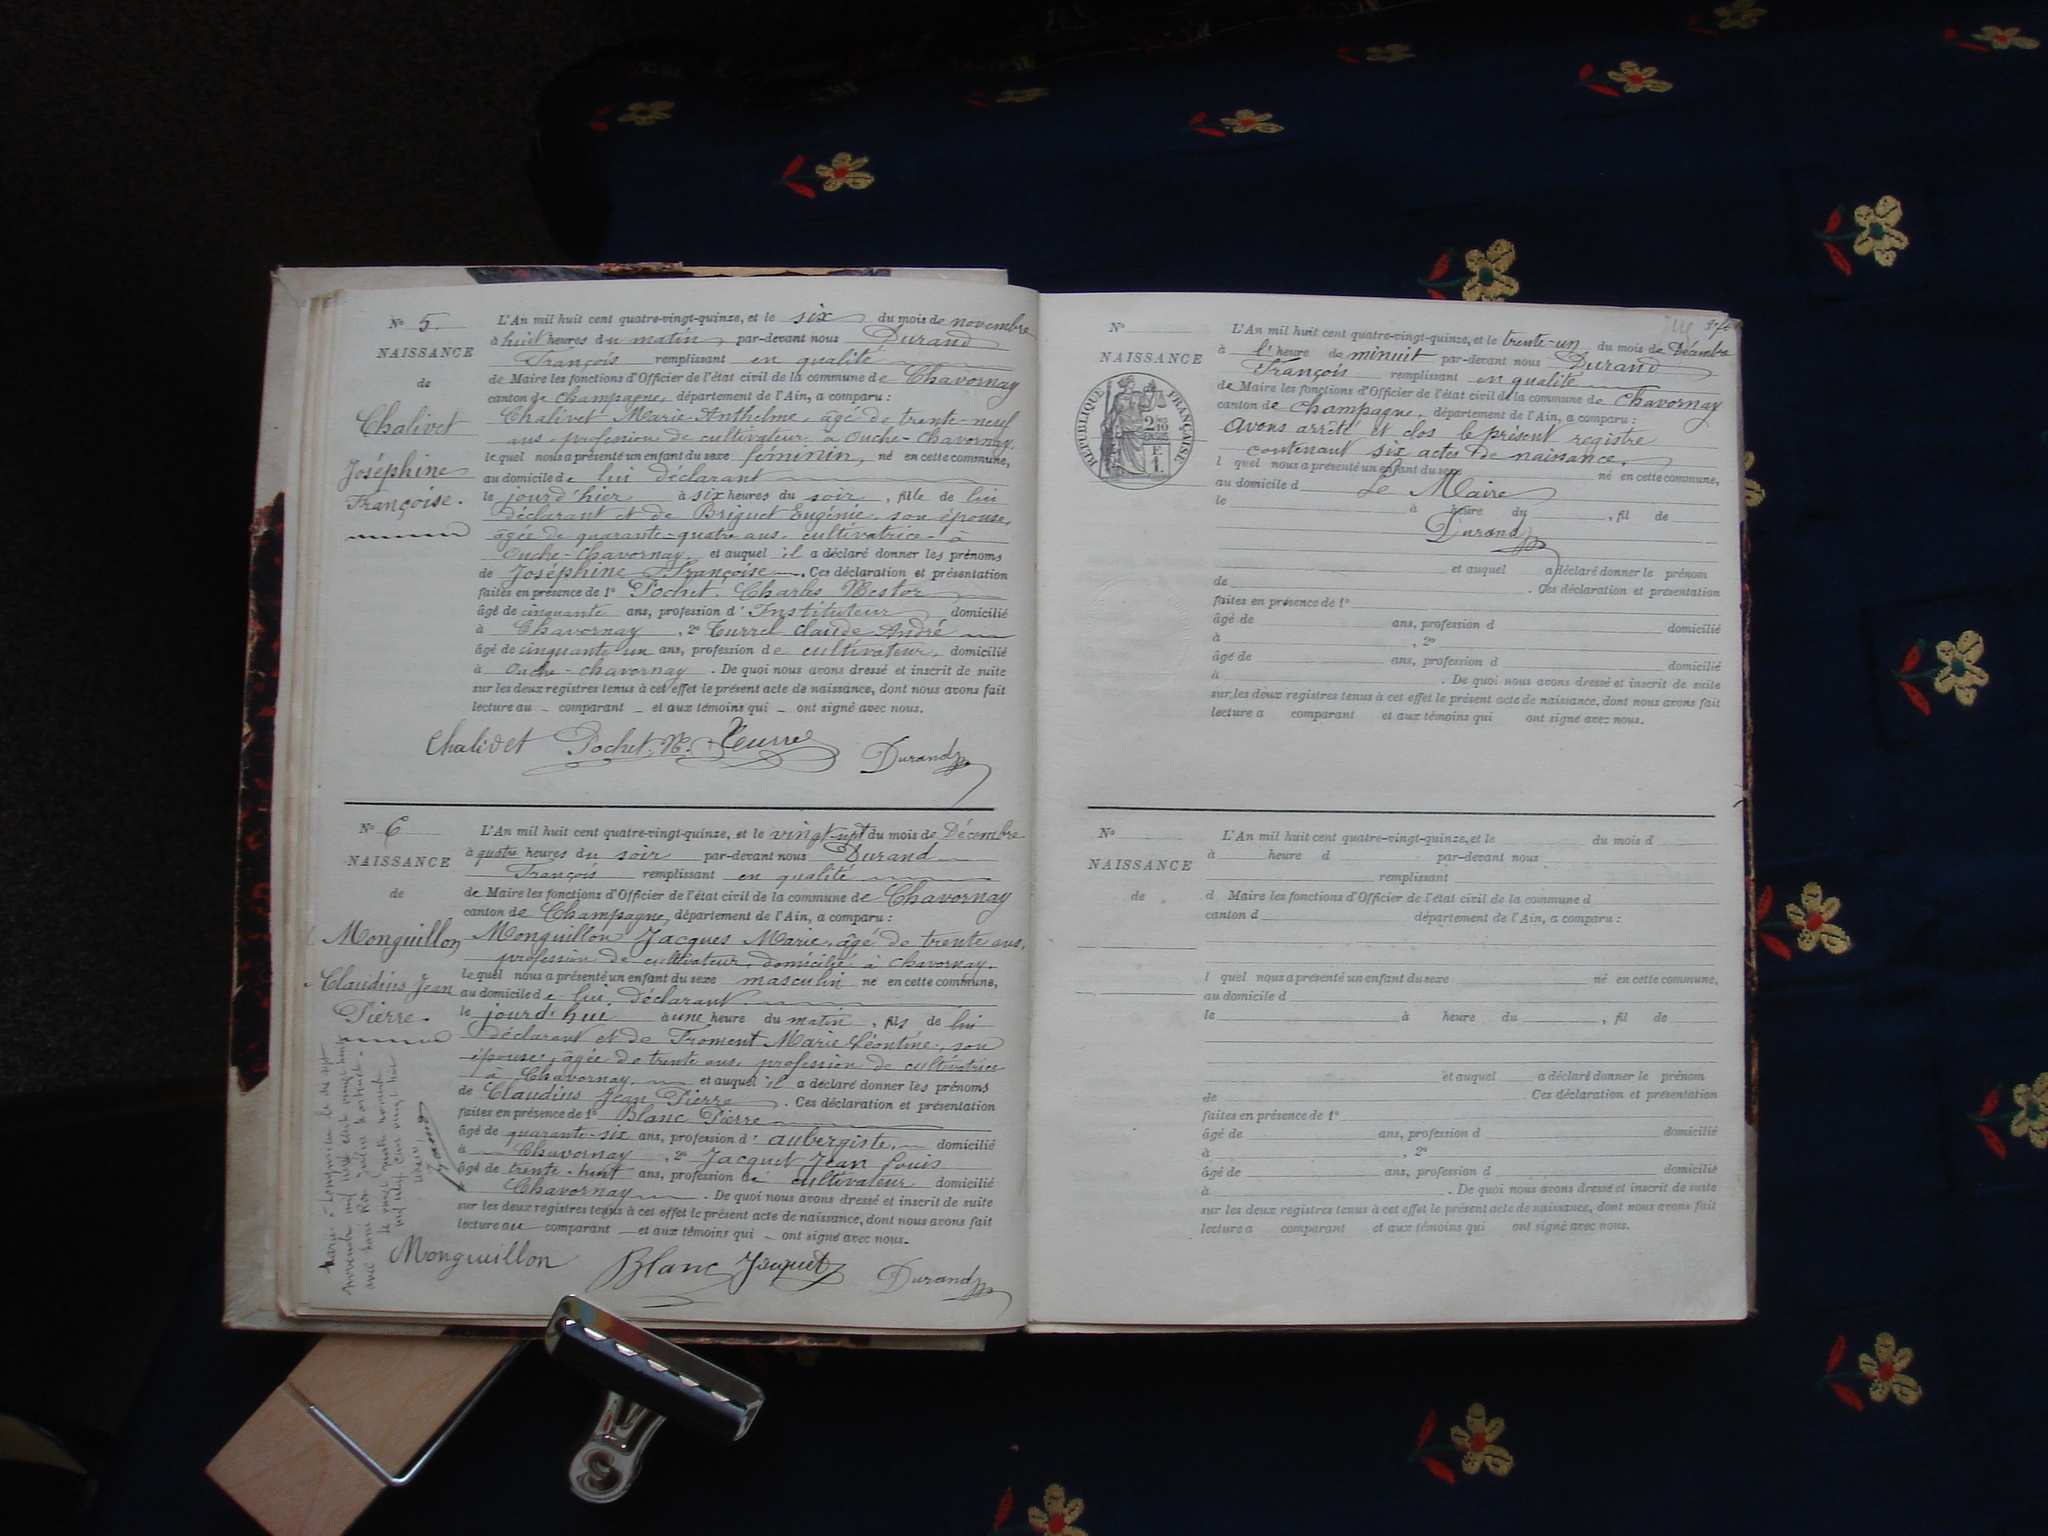 N° 5.
NAISSANCE
de
Chalivet
Joséphine
Françoise.
L'An mil huit cent quatre-vingt-quinze, et le six du mois de novembre
à huit heures du matin, par-devant nous Durand
François remplissant en qualité
de Maire les fonctions d'Officier de l'état civil de la commune de Chavornay
canton de Champagne, département de l'Ain, a comparu :
Chalivet Marie-Anthelme, âgé de trente-neuf
ans, profession de cultivateur, à Ouche-Chavornay.
lequel nous a présenté un enfant du sexe féminin, né en cette commune,
au domicile de lui déclarant
le jourd'hier à six heures du soir, fille de lui
déclarant et de Briguet Eugénie, son épouse,
âgée de quarante-quatre ans, cultivatrice à
Ouche-Chavornay, et auquel il a déclaré donner les prénoms
de Joséphine Françoise. Ces déclaration et présentation
faites en présence de 1° Pochet, Charles Nestor
âgé de cinquante ans, profession d'Instituteur domicilié
à Chavornay, 2° Turrel Claude André
âgé de cinquante-un ans, profession de cultivateur, domicilié
à Ouche-Chavornay. De quoi nous avons dressé et inscrit de suite
sur les deux registres tenus à cet effet le présent acte de naissance, dont nous avons fait
lecture au comparant et aux témoins qui ont signé avec nous.
Chalivet Pochet. N. Turrel Durand
N° 6
NAISSANCE
de
Monguillon
Claudius Jean
Pierre.
L'An mil huit cent quatre-vingt-quinze, et le vingt-sept du mois de Décembre
à quatre heures du soir par-devant nous Durand
François remplissant en qualité
de Maire les fonctions d'Officier de l'état civil de la commune de Chavornay
canton de Champagne, département de l'Ain, a comparu :
Monguillon Jacques Marie, âgé de trente ans,
profession de cultivateur, domicilié à Chavornay.
lequel nous a présenté un enfant du sexe masculin né en cette commune,
au domicile de lui, déclarant
le jourd'hui à une heure du matin, fils de lui
déclarant et de Froment Marie Léontine, son
épouse, âgée de trente ans, profession de cultivatrice
à Chavornay, et auquel il a déclaré donner les prénoms
de Claudius Jean Pierre. Ces déclaration et présentation
faites en présence de 1° Blanc Pierre
âgé de quarante-six ans, profession d'aubergiste, domicilié
à Chavornay, 2° Jacquet Jean Louis
âgé de trente-huit ans, profession de cultivateur domicilié
à Chavornay. De quoi nous avons dressé et inscrit de suite
sur les deux registres tenus à cet effet le présent acte de naissance, dont nous avons fait
lecture au comparant et aux témoins qui ont signé avec nous.
Monguillon Blanc Jacquet Durand
N°
NAISSANCE
RÉPUBLIQUE FRANÇAISE
L'An mil huit cent quatre-vingt-quinze, et le trente-un du mois de Décembre
à l'heure de minuit par-devant nous Durand
François remplissant en qualité
de Maire les fonctions d'Officier de l'état civil de la commune de Chavornay
canton de Champagne, département de l'Ain, a comparu :
avons arrêté et clos le présent registre
contenant six actes de naissance.
l quel nous a présenté un enfant du sexe né en cette commune,
au domicile d Le Maire
le à heure du , fil de
Durand
et auquel a déclaré donner le prénom
de . Ces déclaration et présentation
faites en présence de 1°
âgé de ans, profession d domicilié
à , 2°
âgé de ans, profession d domicilié
à . De quoi nous avons dressé et inscrit de suite
sur les deux registres tenus à cet effet le présent acte de naissance, dont nous avons fait
lecture a comparant et aux témoins qui ont signé avec nous.
N°
NAISSANCE
de
L'An mil huit cent quatre-vingt-quinze, et le du mois d
à heure d par-devant nous
remplissant
d Maire les fonctions d'Officier de l'état civil de la commune d
canton d département de l'Ain, a comparu :
l quel nous a présenté un enfant du sexe né en cette commune,
au domicile d
le à heure du , fil de
et auquel a déclaré donner le prénom
de . Ces déclaration et présentation
faites en présence de 1°
âgé de ans, profession d domicilié
à , 2°
âgé de ans, profession d domicilié
à . De quoi nous avons dressé et inscrit de suite
sur les deux registres tenus à cet effet le présent acte de naissance, dont nous avons fait
lecture a comparant et aux témoins qui ont signé avec nous.